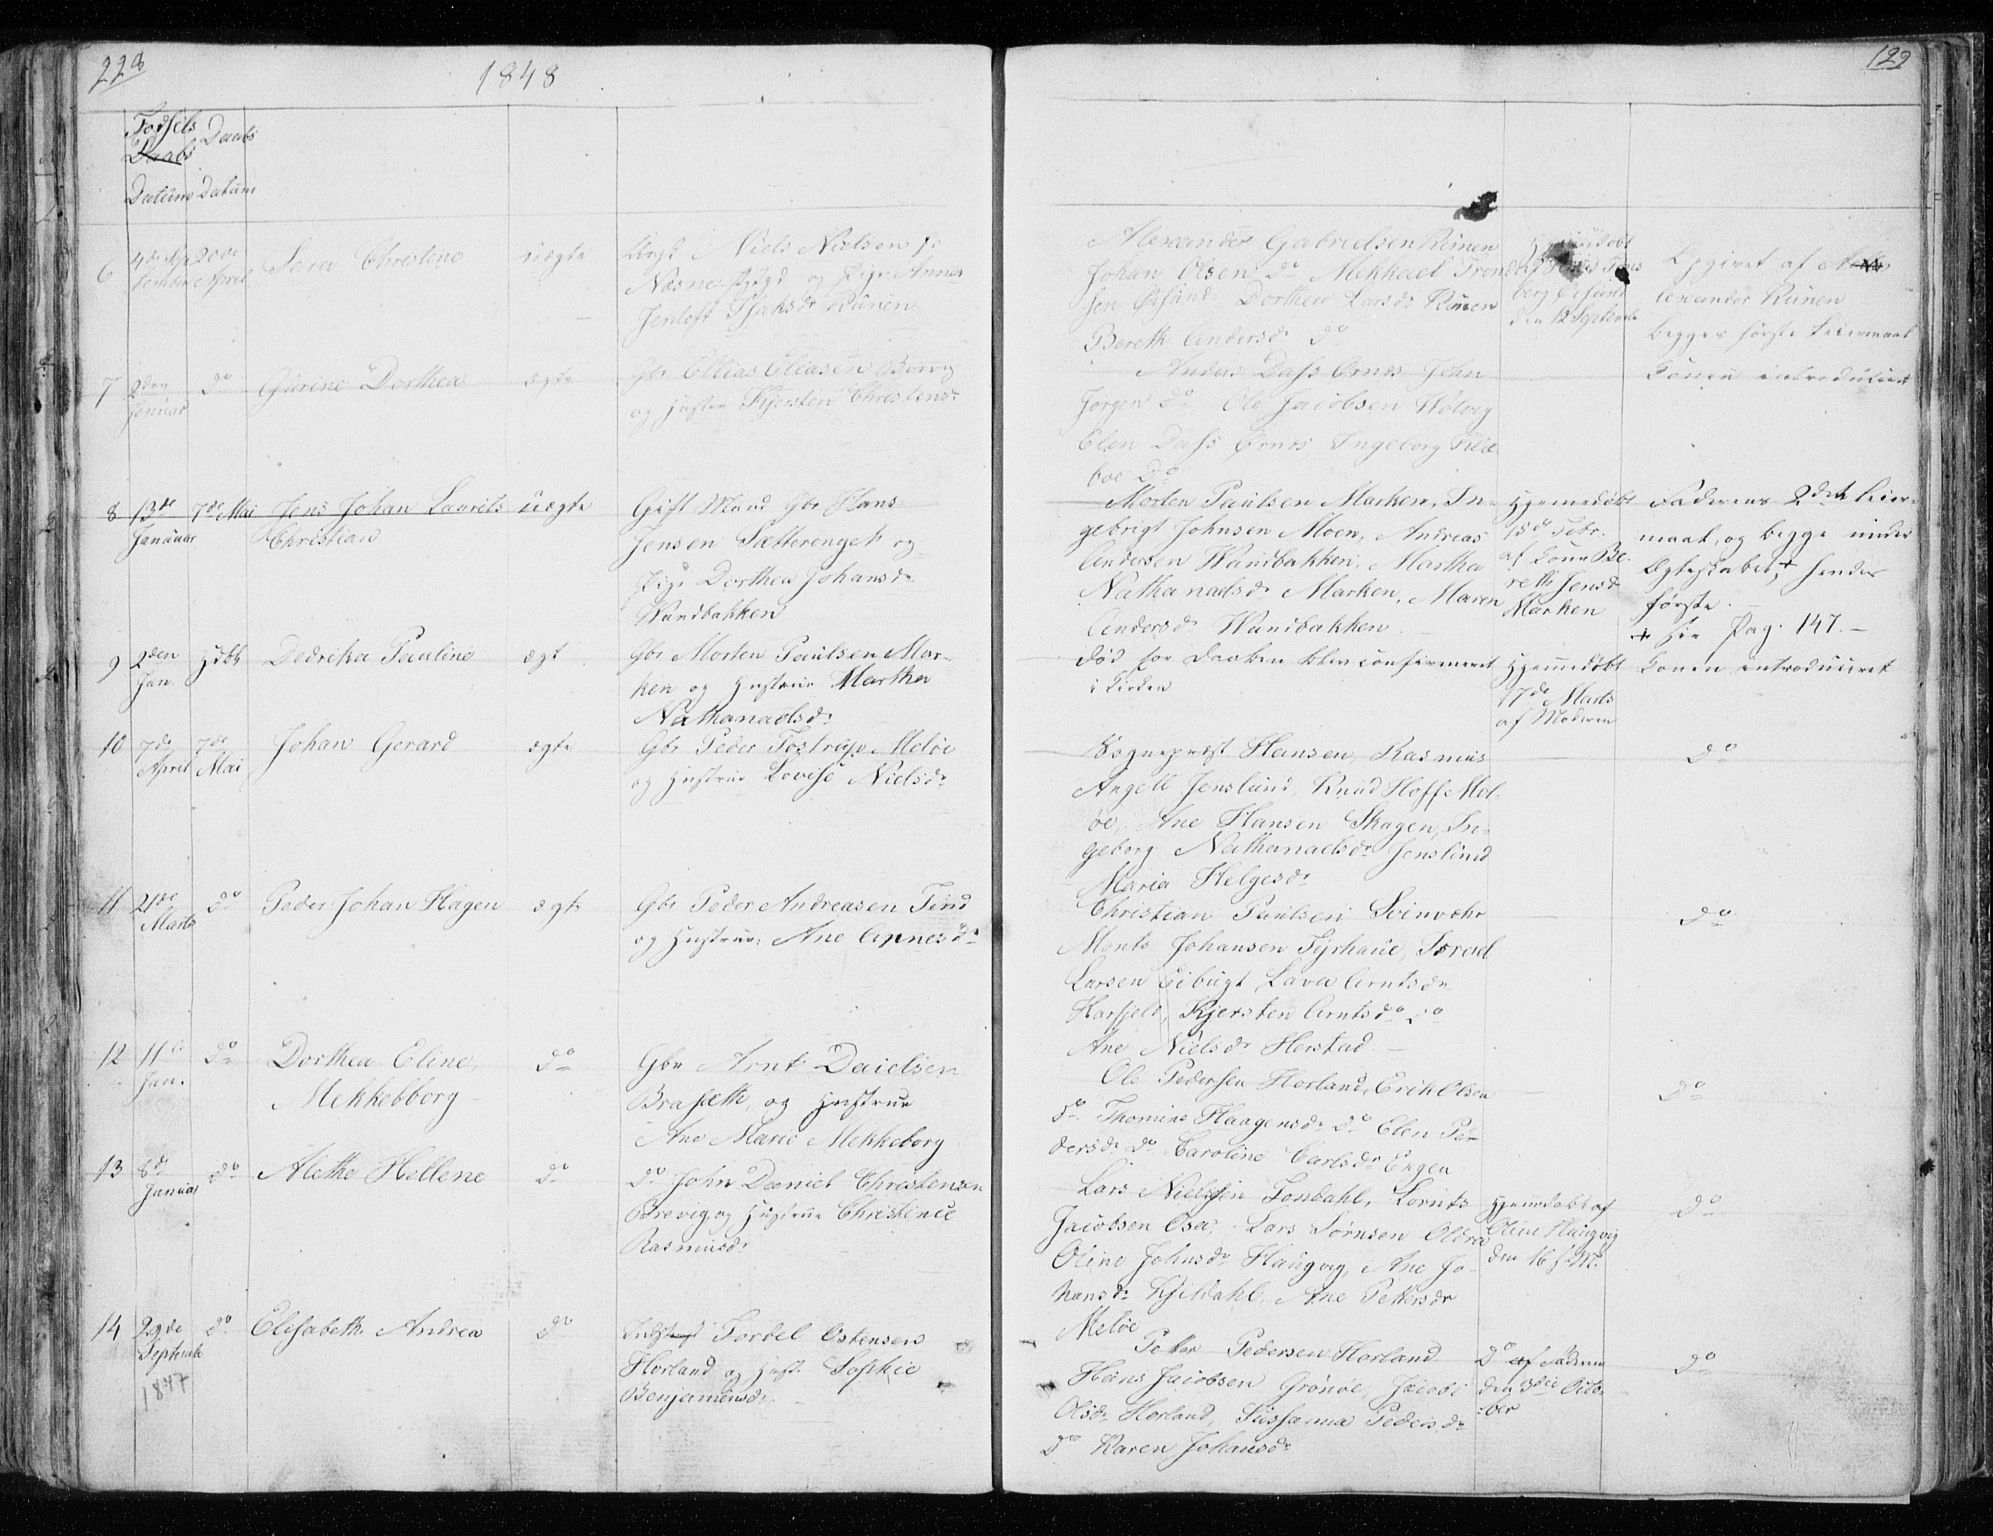 228
1848
129
Fødsels
Daabs
Daabs
Datum
Datum
6
4de Sep
tember
20de
April
Sara Christine
uægte
Ungk Niels Nielsen
Næsne og Pige Anne
Isaksdr Rünen
Alexander Gabrielsen Rünen
Johan Olsen do Mekkael Tron
sen Øesund Dorthea Larsdr Rünen
Bereth Andersdr do
den 12 September
Opgivet af
lexander Rünen
begges første Leiermaal
7
2den
Januar
do
Gurine Dorthea
ægte
Gbr Ellias Eliasen
og Hustru Kjersten Christensdr
Anders Dass Ørnes John
Jørgen do Ole Jacobsen
Elen Dass Ørnes Ingeborg Kild
boe do
Konen introduceret
8
13de
Januuar
7de Mai
Jens Johan Laurits
Christian
uægte
Gift Mand Gbr Hans
Jensen Sætterenget og
Pige Dorthea Johansdr
Vandbakken
Morten Paulsen Marken, In-
gebrigt Johnsen Moen, Andreas
Andersen Wandbakken, Martha
Nathanaelsdr Marken, Maren
Andersdr Wandbakken
Hjemmedøbt
15de Febr.
af Kone Be-
reth Jensdr
Marken
Faderens 2det Leier-
maal, og begge under
Ægteskabet, + hendes
første.
+ see Pag. 147.-
9
2den
Jan.
Hdbt
Dedrika Pauline
ægt
Gbr Morten Paulsen Mar-
ken og Hustrue Martha
Nathanaelsdr
død før Daaben blev confirmeret
i Kirken
Hjemmedøbt
17de Marts
af Moderen
Konen introduceret
10
7de
April
7de
Mai
Johan Gerard
ægte
Gbr Peder Tostrup Meløe
og Hustrue Lovise Nielsdr
Sognepræst Hansen, Rasmus
Angell Jenslund, Knud Hoff Mel-
øe, Ane Hansen Skagen, In-
geborg Nathanaelsdr Jenslund
Maria Helgesdr
do
11
21de
Marts
do
Peder Johan Hagen
ægte
Gbr Peder Andreasen Tind
og Hustrue Ane Agnesdr
Christian Paulsen Svinvær
Monts Johansen Fyrhaue, Toruel
Larsen Eibugt Lava Arntsdr
Harfjeld, Kjersten Arntsdr do
Ane Nielsdr Herstad
do
12
11te
Jan.
do
Dorthea Eline
Mekkebborg
do
Gbr Arnt Daielsen
Brasæth og Hustrue
Ane Marie Mekkeborg
Ole Pedersen Horland, Erik Olsen
do Thomine Haagensdr do Elen Pe-
dersdr do Caroline Carlsdr Engen
do
13
8de
Januar
do
Alethe Hellene
do
do John Daniel Christensen
Brevig og Hustrue Christence
Rasmusdr
Lars Nielssen Tondahl, Lornts
Jacobsen Osa, Lars Sørnsen Oldra
Oline Johnsdr Haugvig, Ane Jo-
hansdr Kjeldahl, Ane Pettersdr
Meløe
Hjemdøbt af
Oline Haugvig
den 16 f. M.
do
14
29de
Septemb
1847
do
Elisabeth Andrea
do
Indst Tordel Ostensen
Horland og Hust. Sophie
Benjaminsdr
Petter Pedersen Horland
Hans Jacobsen Grønøe, Jacob
Olsdr Horland, Sussanna Pedersdr
do Karen Johansdr
do af Faderen
den 3die Octo-
ber
do